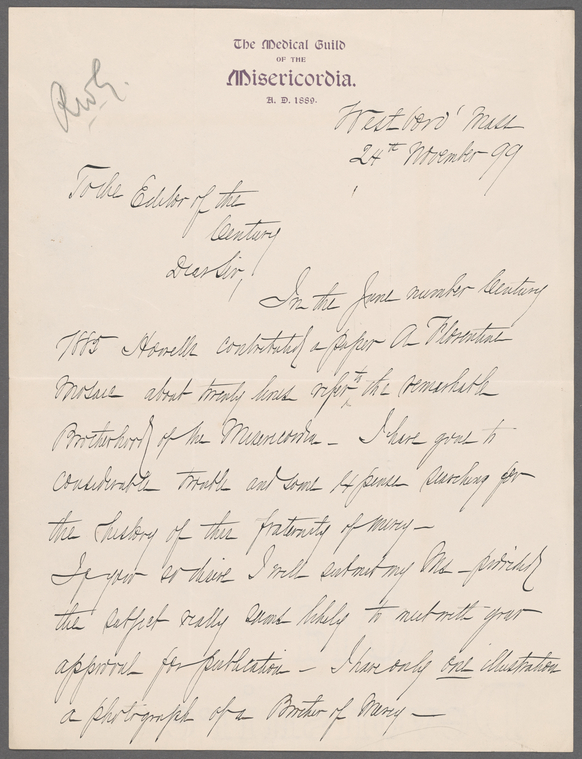 The Medical Guild
OF THE
Misericordia.
A. D. 1889.
RWG.
Westboro' Mass
24th November 99
To the Editor of the
Century
Dear Sir,
In the June number Century
1885 Howells contributed a paper A Florentine
Mosaic about twenty lines refer to the remarkable
Brotherhood of the Misericordia — I have gone to
considerable trouble and some expense searching for
the history of this fraternity of mercy —
If you so desire I will submit my Ms — provided
the subject really seems likely to meet with your
approval for publication — I have only one illustration
a photograph of a Brother of Mercy —